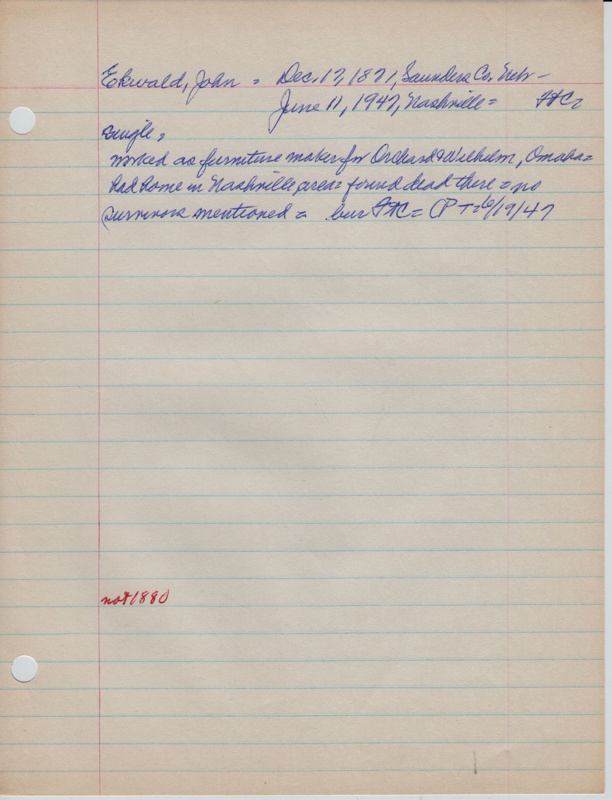 Ekwald, John = Dec. 17, 1871, Saunders Co. Nebr -
June 11, 1947, Nashville = FtC =
single,
worked as furniture maker for Orchard & Wilhelm, Omaha =
had home in Nashville area = found dead there = no
survivors mentioned = bur FtC = PT = 6/19/47
not 1880